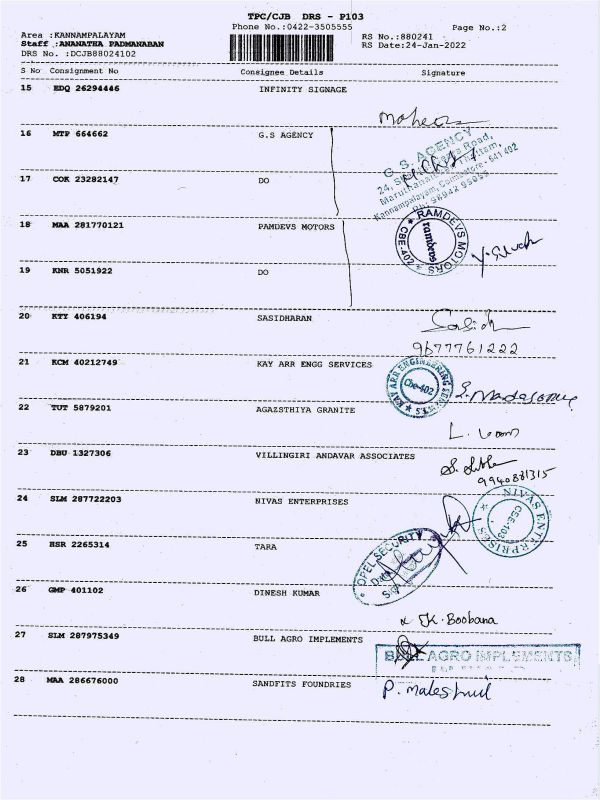 TPC/CJB DRS - P103
Phone No.:0422-3505555
Page No.:2
Area :KANNAMPALAYAM
RS No.:880241
Staff :ANANATHA PADMANABAN
RS Date:24-Jan-2022
DRS No. :DCJB88024102
S No Consignment No Consignee Details Signature
15 EDQ 26294446 INFINITY SIGNAGE
16 MTP 664662 G.S AGENCY
G.S. AGENCY
17 COK 23282147 DO
18 MAA 281770121 PAMDEVS MOTORS
RAMDEVS MOTORS
ramdevs
CBE-402
19 KNR 5051922 DO
20 KTY 406194 SASIDHARAN
Sasidh
9677761222
21 KCM 40212749 KAY ARR ENGG SERVICES
KAY ARR ENGINEERING
Cbe-402
22 TUT 5879201 AGAZSTHIYA GRANITE
23 DBU 1327306 VILLINGIRI ANDAVAR ASSOCIATES
9940881315
24 SLM 287722203 NIVAS ENTERPRISES
NIVAS ENTERPRISES
25 HSR 2265314 TARA
OPEL SECURITY
26 GMP 401102 DINESH KUMAR
K. Boobana
27 SLM 287975349 BULL AGRO IMPLEMENTS
BULL AGRO IMPLEMENTS
28 MAA 286676000 SANDFITS FOUNDRIES